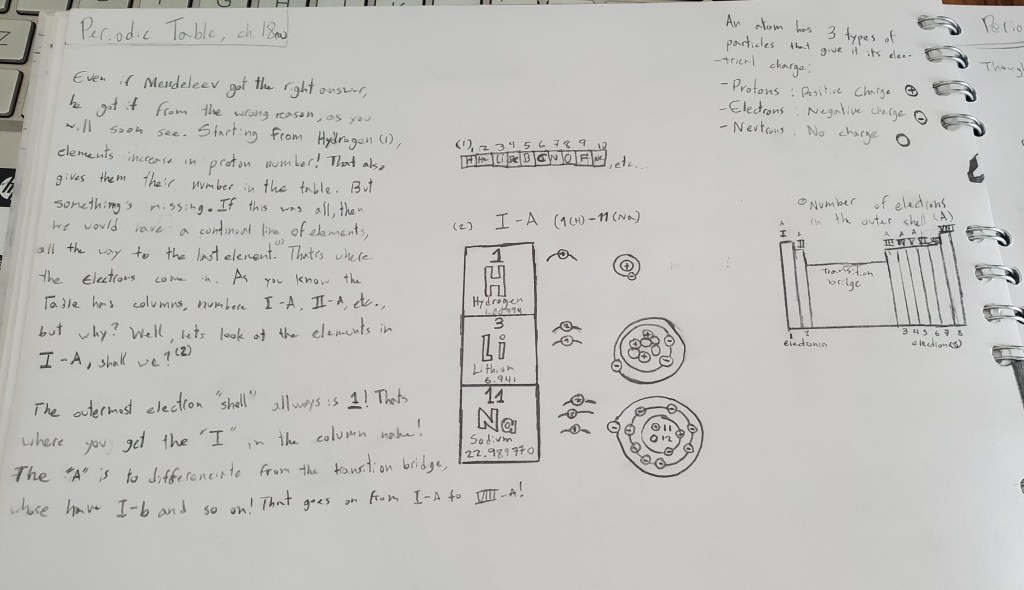 Periodic Table, ch. 18
Even if Mendeleev got the right answer,
he got it from the wrong reason, as you
will soon see. Starting from Hydrogen (1),
elements increase in proton number! That also
gives them their number in the table. But
something's missing. If this was all, then
we would have a continual line of elements,
all the way to the last element.(1) Thats where
the electrons come in. As you know the
Table has columns, numbers I-A, II-A, etc.,
but why? Well, lets look at the elements in
I-A, shall we?(2)
The outermost electron "shell" allways is 1! Thats
where you get the "I" in the column name!
The "A" is to differenciate from the transition bridge,
whose have I-b and so on! That goes on from I-A to VIII-A!
(1) 1 2 3 4 5 6 7 8 9 10
H He Li Be B C N O F Ne, etc...
(2) I-A (1(H)-11(Na)
1
H
Hydrogen
3
Li
Lithium
6.941
11
Na
Sodium
22.989770
11
12
An atom has 3 types of
particles that give it its elec-
-trical charge:
- Protons: Positive Charge +
- Electrons: Negative charge -
- Neutrons: No charge
Number of electrons
in the outer shell (A)
A A A A A VIII
I II III
Transition
bridge
1 2 3 4 5 6 7 8
electron(s)
Perio
Though